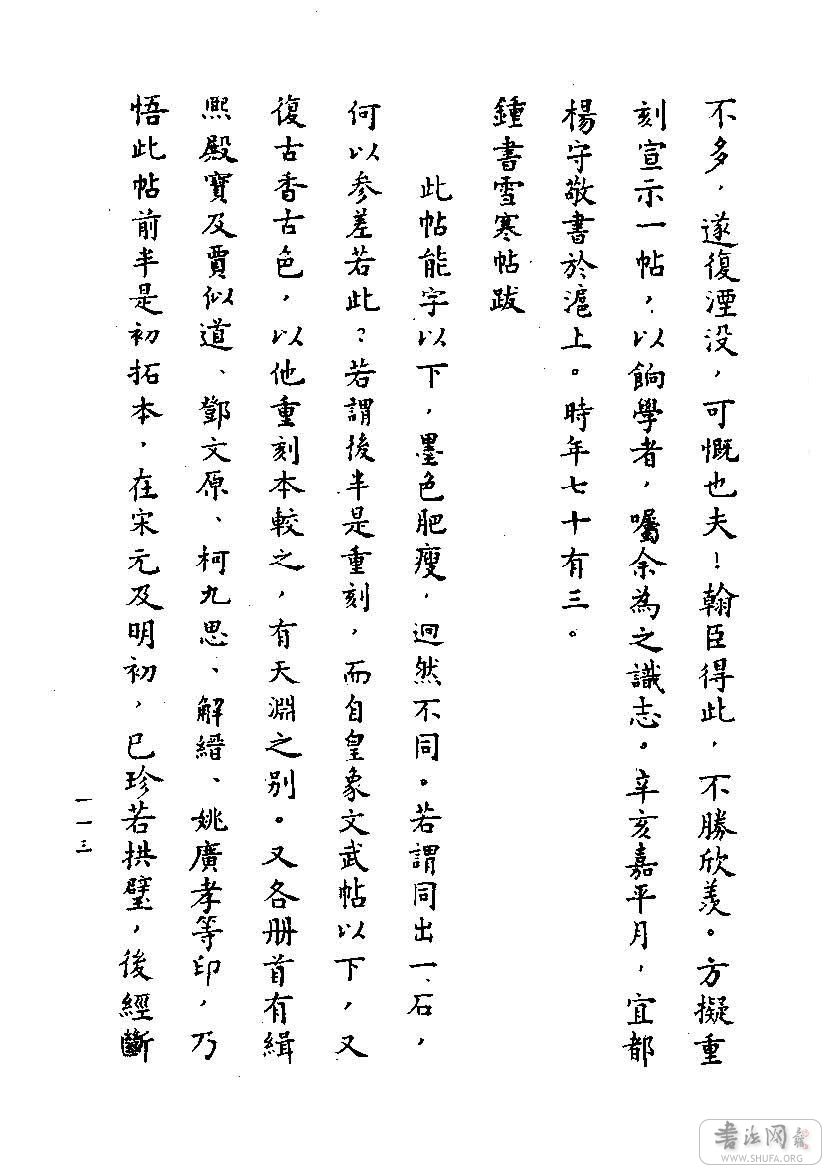 不多，遂復湮没，可慨也夫！翰臣得此，不勝欣羨。方擬重
刻宣示一帖，以餉學者，囑余為之識志。辛亥嘉平月，宜都
楊守敬書於滬上。時年七十有三。
鍾書雪寒帖跋
此帖能字以下，墨色肥瘦，迥然不同。若謂同出一石，
何以參差若此？若謂後半是重刻，而自皇象文武帖以下，又
復古香古色，以他重刻本較之，有天淵之别。又各册首有緝
熙殿寶及賈似道、鄧文原、柯九思、解縉、姚廣孝等印，乃
悟此帖前半是初拓本，在宋元及明初，已珍若拱璧，後經斷
一一三
書法网
WWW.SHUFA.ORG